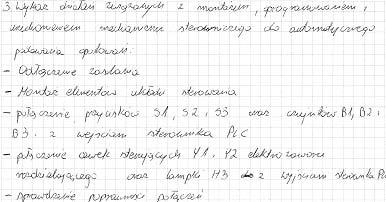 3. Wykaz działań związanych z montażem, programowaniem i
uruchomieniem mechanizmu sterowniczego do automatycznego
pakowania opakowań:
- Odłączenie zasilania
- Montaż elementów układu sterowania
- połączenie przycisków S1, S2 i S3 oraz czujników B1, B2 i
B3 z wejściami sterownika PLC
- połączenie cewek sterujących Y1, Y2 elektrozaworu
rozdzielającego oraz lampki H3 z wyjściami sterownika PLC
- sprawdzenie poprawności połączeń